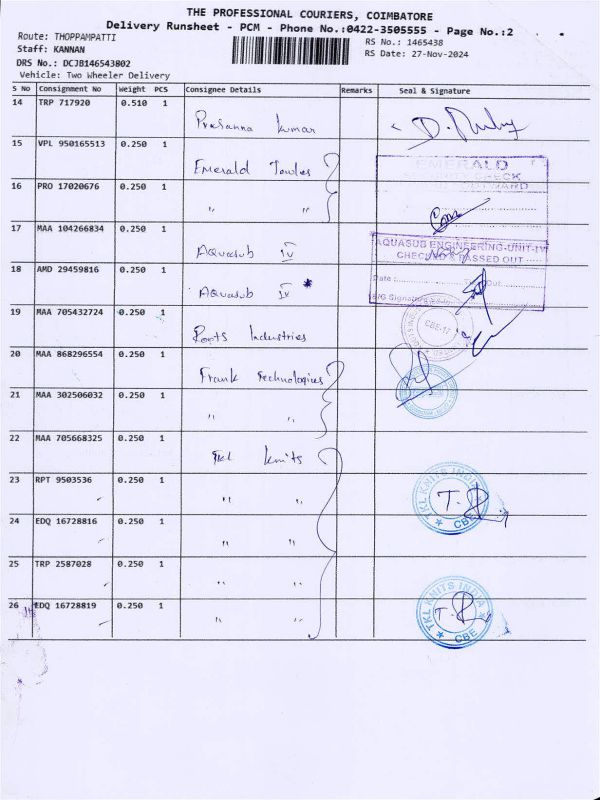 THE PROFESSIONAL COURIERS, COIMBATORE
Delivery Runsheet - PCM - Phone No.:0422-3505555 - Page No.:2
Route: THOPPAMPATTI
RS No.: 1465438
Staff: KANNAN
RS Date: 27-Nov-2024
DRS No.: DCJB146543802
Vehicle: Two Wheeler Delivery
S No Consignment No Weight PCS Consignee Details Remarks Seal & Signature
14 TRP 717920 0.510 1 Prasanna Kumar
15 VPL 950165513 0.250 1 Emerald
16 PRO 17020676 0.250 1 " "
17 MAA 104266834 0.250 1 Aquasub IV
18 AMD 29459816 0.250 1 Aquasub IV *
19 MAA 705432724 0.250 1 Roots Industries
20 MAA 868296554 0.250 1 Frank Technologies
21 MAA 302506032 0.250 1 " "
22 MAA 705668325 0.250 1 TKL Knits
23 RPT 9503536 0.250 1 " "
24 EDQ 16728816 0.250 1 " "
25 TRP 2587028 0.250 1 " "
26 EDQ 16728819 0.250 1 " "
EMERALD
AQUASUB ENGINEERING-UNIT-IV
CHECKED & PASSED OUT
Date :
CBE-17
TKL KNITS INDIA
CBE
TKL KNITS INDIA
CBE